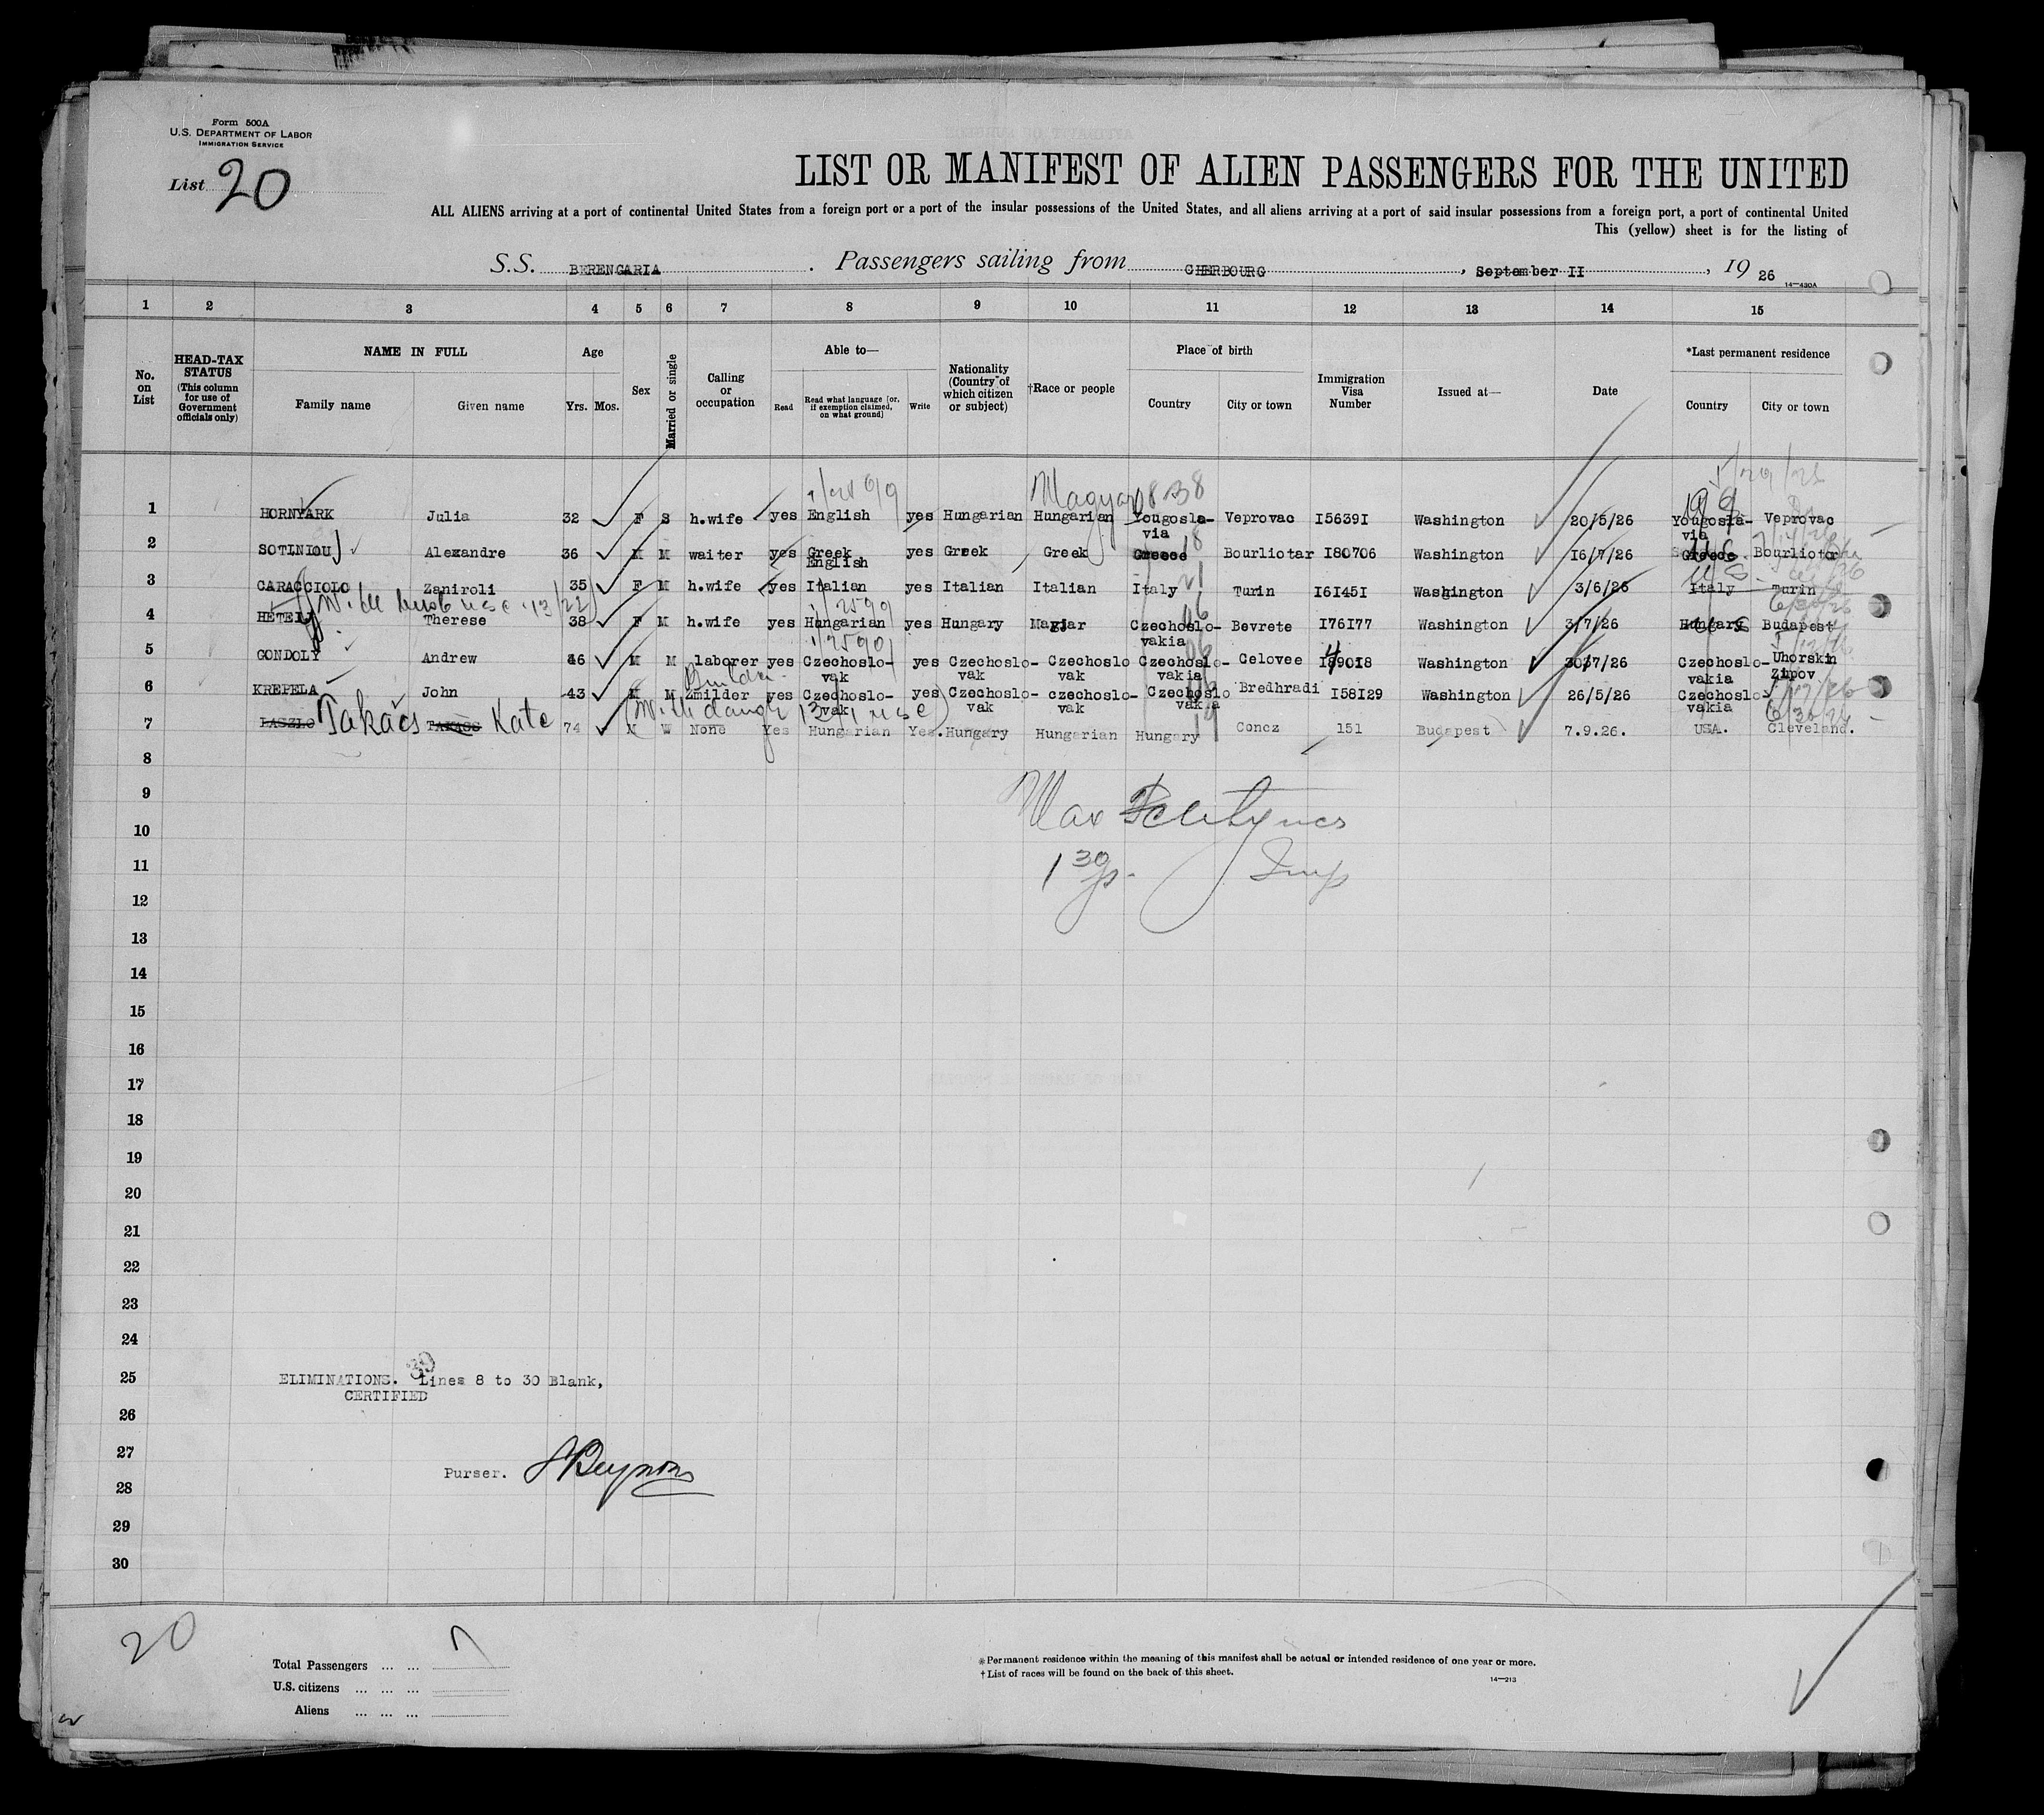 Form 500A
U.S. DEPARTMENT OF LABOR
IMMIGRATION SERVICE
List 20
LIST OR MANIFEST OF ALIEN PASSENGERS FOR THE UNITED
ALL ALIENS arriving at a port of continental United States from a foreign port or a port of the insular possessions of the United States, and all aliens arriving at a port of said insular possessions from a foreign port, a port of continental United
This (yellow) sheet is for the listing of
S.S. BERENGARIA . Passengers sailing from CHERBOURG , September II , 19 26
14—430A
1 2 3 4 5 6 7 8 9 10 11 12 13 14 15
No. on List
HEAD-TAX STATUS (This column for use of Government officials only)
NAME IN FULL
Family name Given name
Age
Yrs. Mos.
Sex
Married or single
Calling or occupation
Able to—
Read Read what language [or, if exemption claimed, on what ground] Write
Nationality (Country of which citizen or subject)
†Race or people
Place of birth
Country City or town
Immigration Visa Number
Issued at—
Date
*Last permanent residence
Country City or town
Magyar
1 HORNYARK Julia 32 F S h.wife yes English yes Hungarian Hungarian Yougosla-via Veprovac I5639I Washington 20/5/26 Yougosla-via Veprovac
2 SOTINIOU Alexandre 36 M M waiter yes Greek English yes Greek Greek Greece Bourliotar I80706 Washington I6/7/26 Greece Bourliotar
3 CARACCIOLO Zaniroli 35 F M h.wife yes Italian yes Italian Italian Italy Turin I6I45I Washington 3/6/26 Italy Turin
4 HETEIJ Therese 38 F M h.wife yes Hungarian yes Hungary Magjar Czechoslo-vakia Bevrete I76I77 Washington 3/7/26 Hungary Budapest
5 GONDOLY Andrew 46 M M laborer yes Czechoslo-vak yes Czechoslo-vak Czechoslo vak Czechoslo-vakia Celovee I890I8 Washington 30/7/26 Czechoslo-vakia Uhorskin Zipov
6 KREPELA John 43 M M milder yes Czechoslo-vak yes Czechoslo-vak czechoslo-vak Czechoslo vakia Bredhradi I58I29 Washington 26/5/26 Czechoslo-vakia
7 LASZLO Takács TAKACS Kate 74 W None Yes Hungarian Yes. Hungary Hungarian Hungary Concz 151 Budapest 7.9.26. USA. Cleveland.
8
9
10
11
12
13
14
15
16
17
18
19
20
21
22
23
24
25 ELIMINATIONS. Lines 8 to 30 Blank,
CERTIFIED
26
27
Purser.
28
29
30
20
Total Passengers ... ... 7
U.S. citizens ... ... ...
Aliens ... ... ...
*Permanent residence within the meaning of this manifest shall be actual or intended residence of one year or more.
†List of races will be found on the back of this sheet.
14—213